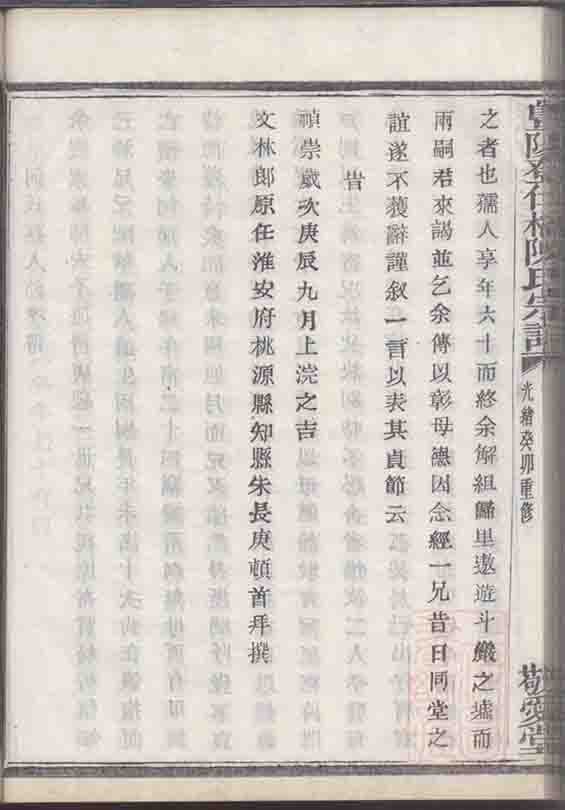 之者也孺人享年六十而終余解組歸里遨遊斗巖之墟而
兩嗣君來謁並乞余傳以彰母德因念經一兄昔日同堂之
誼遂不獲辭謹叙一言以表其貞節云
旹
禎崇歲次庚辰九月上浣之吉
文林郎原任淮安府桃源縣知縣朱長庚頓首拜撰
陳氏宗譜
光緒癸卯重修
敬愛堂